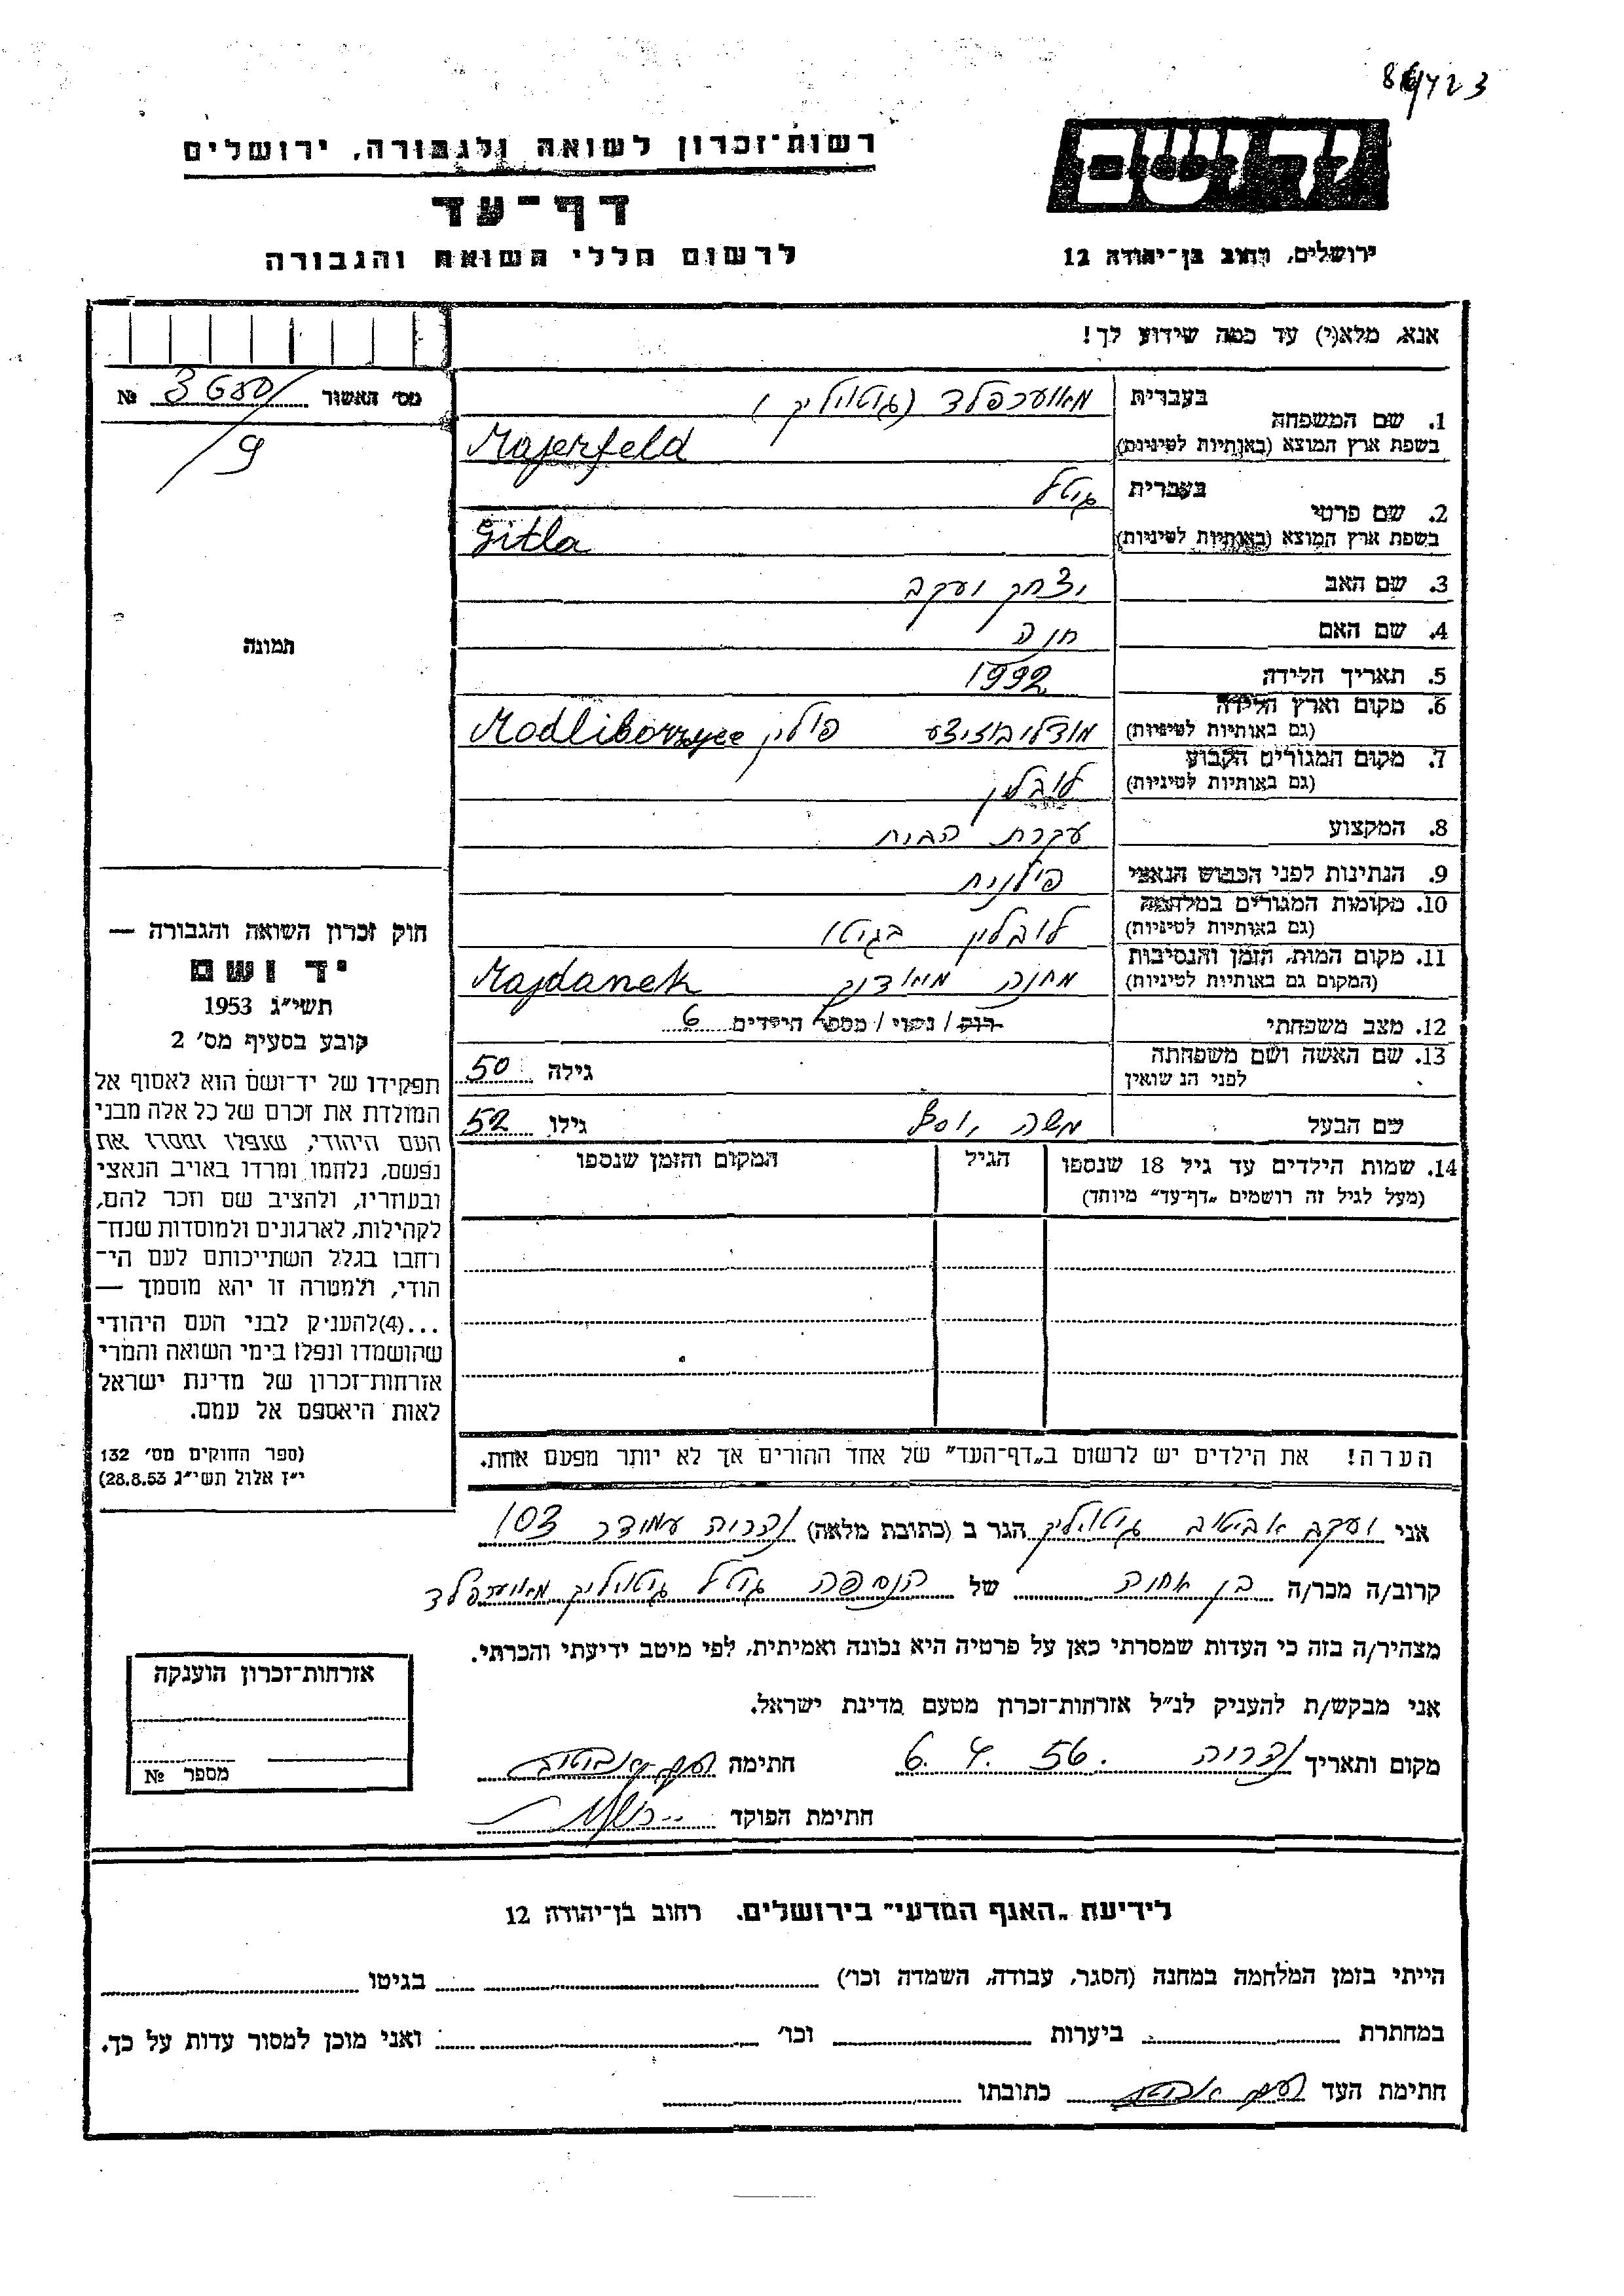 רשות־זכרון לשואה ולגבורה, ירושלים
דף־עד
לרשום חללי השואה והגבורה
ידושם
ירושלים, רחוב בן־יהודה 12
אנא, מלא(י) עד כמה שידוע לך!
מס׳ האשור № 3
9
1. שם המשפחה בעברית מאיערפלד (גוטוליק)
בשפת ארץ המוצא (באותיות לטיניות) Majerfeld
2. שם פרטי בעברית גיטל
בשפת ארץ המוצא (באותיות לטיניות) Gitla
3. שם האב יצחק יעקב
4. שם האם חנה
5. תאריך הלידה 1992
6. מקום וארץ הלידה (גם באותיות לטיניות) פולין Modliborzyce
7. מקום המגורים הקבוע (גם באותיות לטיניות) לובלין
8. המקצוע עקרת הבית
9. הנתינות לפני הכבוש הנאצי פולנית
10. מקומות המגורים במלחמה (גם באותיות לטיניות) לובלין בגיטו
11. מקום המות, הזמן והנסיבות (המקום גם באותיות לטיניות) מחנה מאידנק Majdanek
12. מצב משפחתי רוק / נשוי / מספר הילדים 6
13. שם האשה ושם משפחתה לפני הנשואין גילה 50
שם הבעל משה יוסף גילו 52
14. שמות הילדים עד גיל 18 שנספו (מעל לגיל זה רושמים „דף־עד” מיוחד) הגיל המקום והזמן שנספו
הערה! את הילדים יש לרשום ב„דף־העד” של אחד ההורים אך לא יותר מפעם אחת.
תמונה
חוק זכרון השואה והגבורה —
יד ושם
תשי״ג 1953
קובע בסעיף מס׳ 2
תפקידו של יד־ושם הוא לאסוף אל
המולדת את זכרם של כל אלה מבני
העם היהודי, שנפלו ומסרו את
נפשם, נלחמו ומרדו באויב הנאצי
ובעוזריו, ולהציב שם וזכר להם,
לקהילות, לארגונים ולמוסדות שנח־
רחבו בגלל השתייכותם לעם הי־
הודי, ולמטרה זו יהא מוסמך —
...(4)להעניק לבני העם היהודי
שהושמדו ונפלו בימי השואה והמרי
אזרחות־זכרון של מדינת ישראל
לאות היאספם אל עמם.
(ספר החוקים מס׳ 132
י״ז אלול תשי״ג 28.8.53)
אני יעקב אביטוב הגר ב (כתובת מלאה) 103
קרוב/ה מכר/ה בן אחיה של הנספה גיטל
מצהיר/ה בזה כי העדות שמסרתי כאן על פרטיה היא נכונה ואמיתית, לפי מיטב ידיעתי והכרתי.
אני מבקש/ת להעניק לנ״ל אזרחות־זכרון מטעם מדינת ישראל.
מקום ותאריך 6. 4. 56 חתימה
חתימת הפוקד
אזרחות־זכרון הוענקה
מספר №
לידיעת „האגף המדעי” בירושלים, רחוב בן־יהודה 12
הייתי בזמן המלחמה במחנה (הסגר, עבודה, השמדה וכו׳) בגיטו
במחתרת ביערות וכו׳ ואני מוכן למסור עדות על כך.
חתימת העד כתובתו